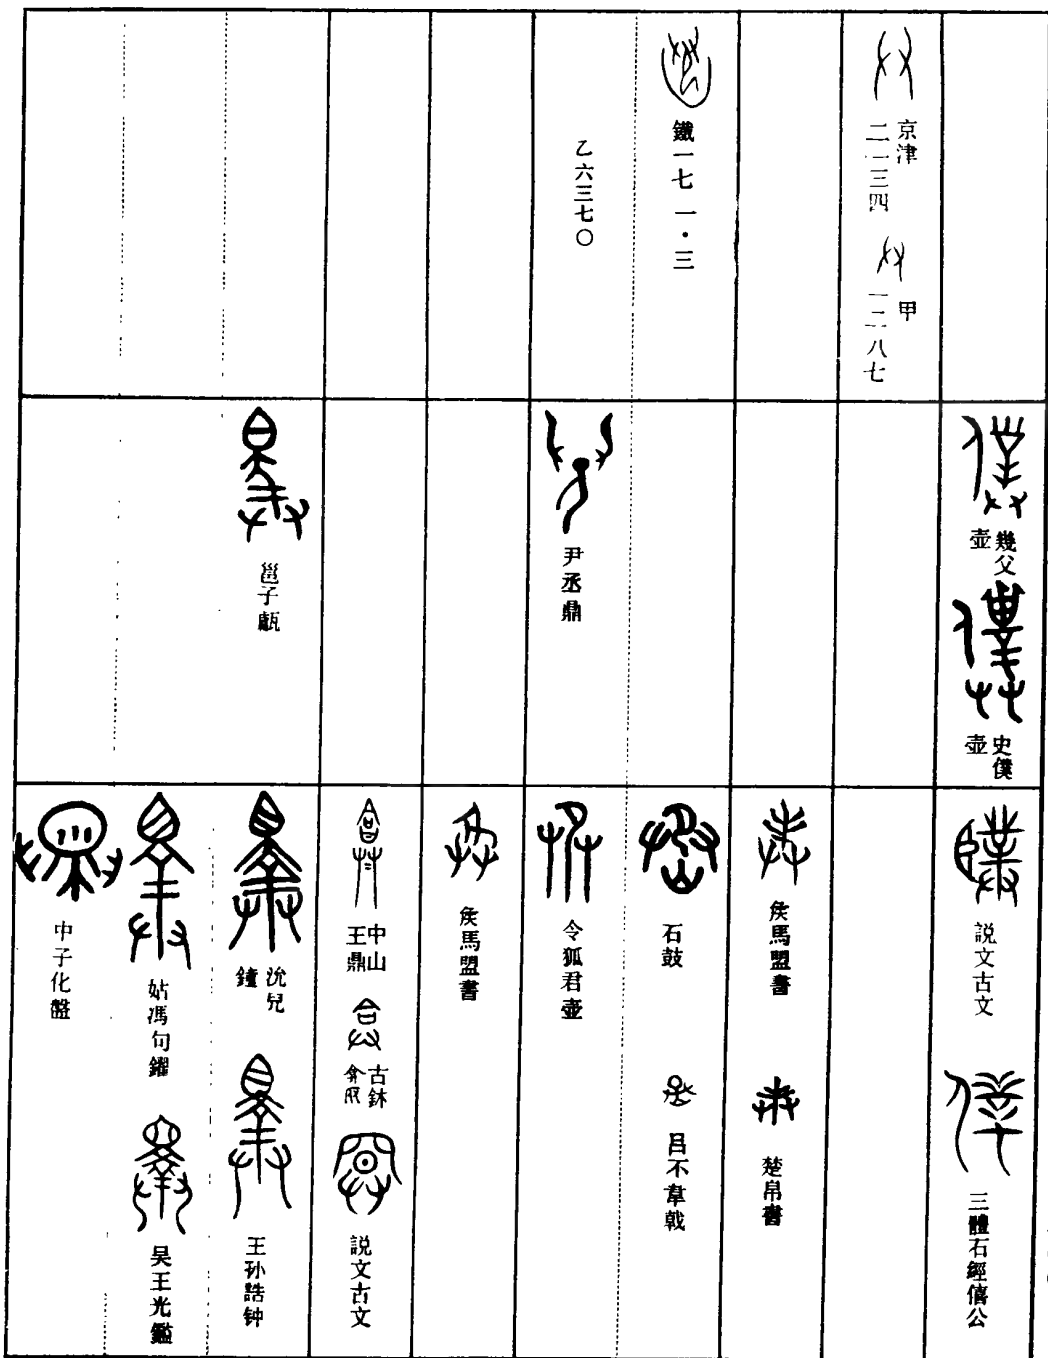 京津
二一三四
甲
一二八七
鐵一七一·三
乙六三七〇
幾父
壺
史僕
壺
尹丞鼎
邕子甗
説文古文
三體石經僖公
矦馬盟書
楚帛書
石鼓
呂不韋戟
令狐君壺
矦馬盟書
中山
王鼎
古鉢
説文古文
沇兒
鐘
王孙誥钟
姑馮句鑃
吴王光鑑
中子化盤